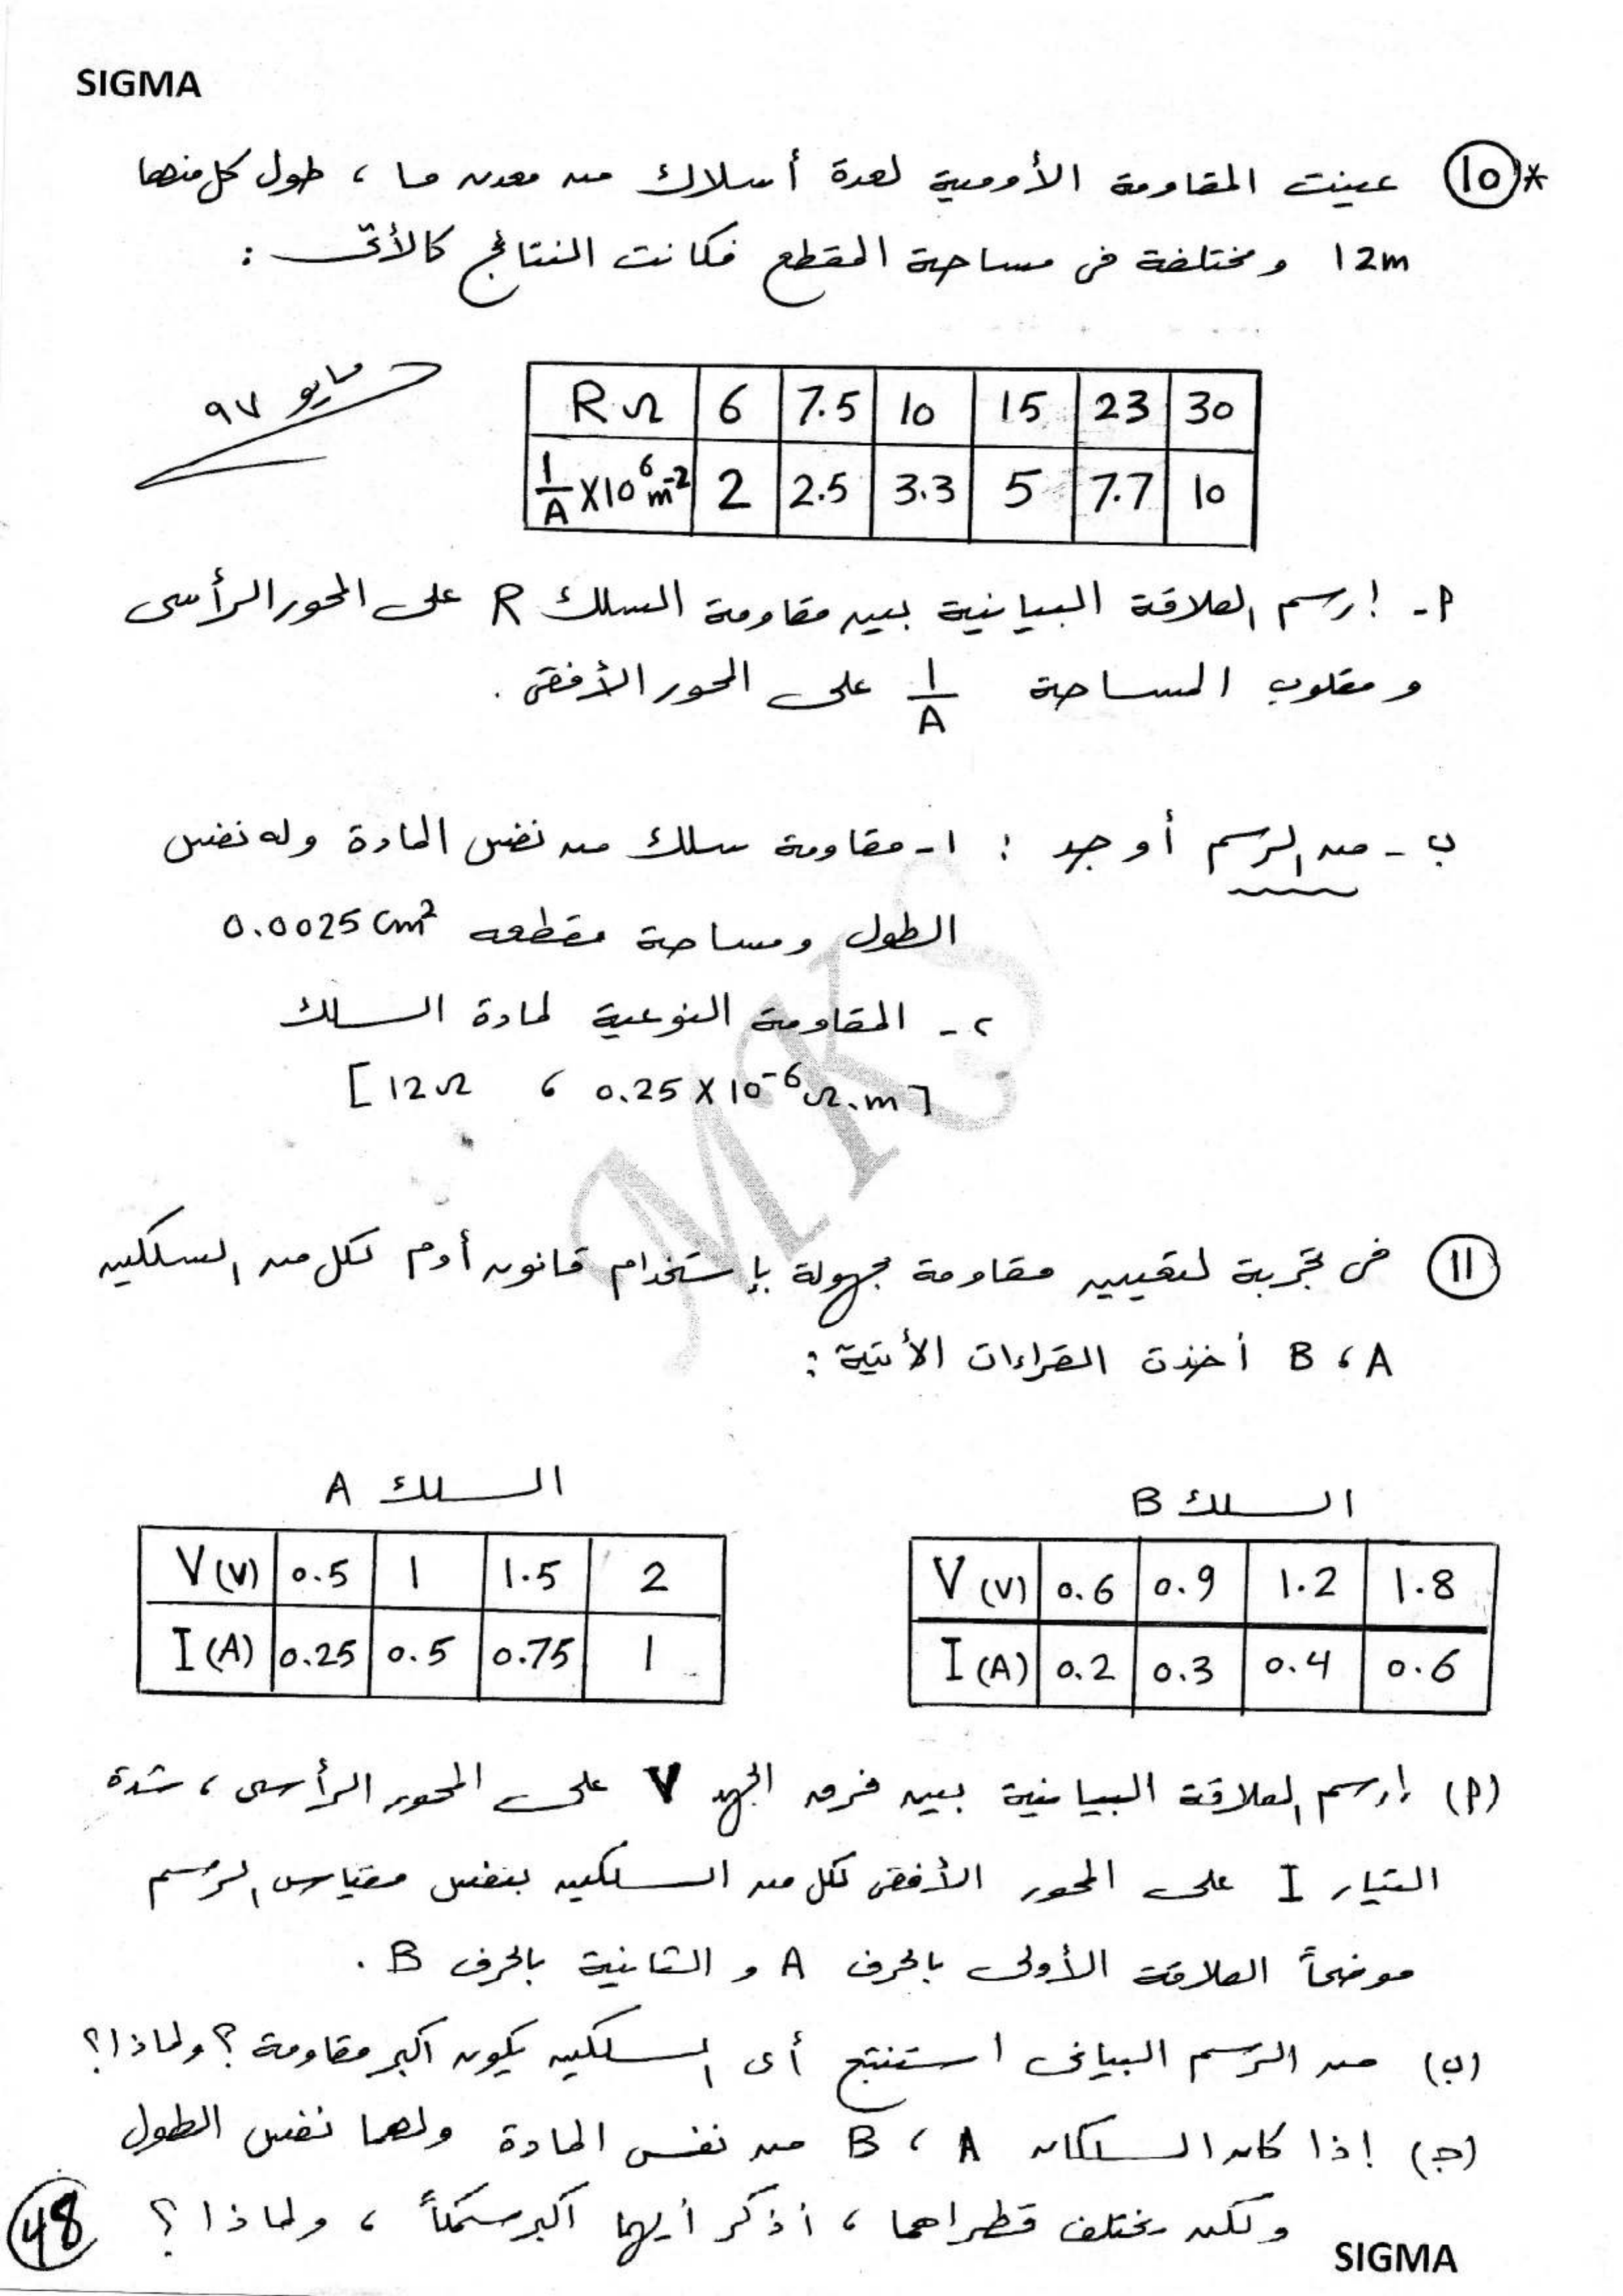 SIGMA
*(10) عينت المقاومة الأومية لعدة أسلاك من معدن ما ، طول كل منها
12m ومختلفة فى مساحة المقطع فكانت النتائج كالأتى :
مايو ٩٧
R Ω 6 7.5 10 15 23 30
1/A ×10⁶ m⁻² 2 2.5 3.3 5 7.7 10
أ- إرسم العلاقة البيانية بين مقاومة السلك R على المحور الرأسى
ومقلوب المساحة 1/A على المحور الأفقى .
ب- من الرسم أوجد : ١- مقاومة سلك من نفس المادة وله نفس
الطول ومساحة مقطعه 0.0025 cm²
٢- المقاومة النوعية لمادة السلك
[ 12Ω ، 0.25 × 10⁻⁶ Ω.m ]
MKS
(11) فى تجربة لتعيين مقاومة مجهولة بإستخدام قانون أوم لكل من السلكين
B ، A أخذت القراءات الأتية :
السلك A
V(V) 0.5 1 1.5 2
I(A) 0.25 0.5 0.75 1
السلك B
V(V) 0.6 0.9 1.2 1.8
I(A) 0.2 0.3 0.4 0.6
(أ) إرسم العلاقة البيانية بين فرق الجهد V على المحور الرأسى ، شدة
التيار I على المحور الأفقى لكل من السلكين بنفس مقياس الرسم
موضحاً العلاقة الأولى بالحرف A و الثانية بالحرف B .
(ب) من الرسم البيانى استنتج أى السلكين يكون أكبر مقاومة ؟ ولماذا ؟
(جـ) إذا كان السلكان B ، A من نفس المادة ولهما نفس الطول
ولكن يختلف قطراهما ، أذكر أيهما أكبر سمكاً ، ولماذا ؟
48
SIGMA